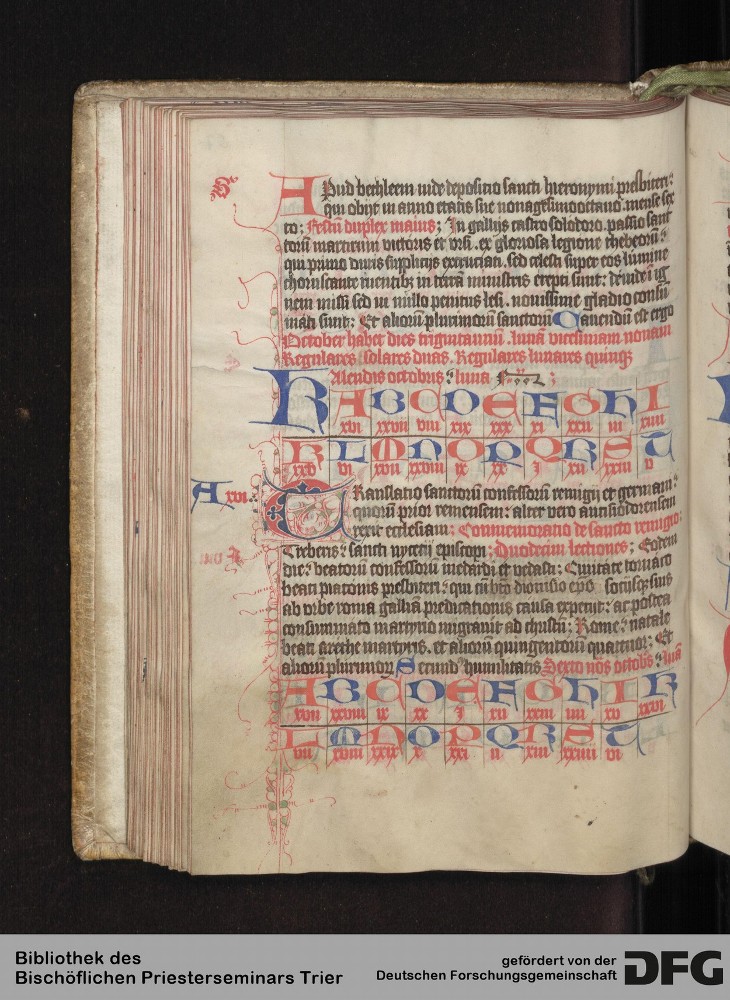 Apud bethleem iude depositio sancti hieronymi presbiteri:
qui obijt in anno etatis sue nonagesimooctauo. mense sex
to: Festū duplex maius; In gallijs castro solodoro. passio sanc
torū martirum victoris et vrsi. ex gloriosa legione thebeorū:
qui primo duris supplicijs excruciati. sed celesti super eos lumine
choruscante ruentibꝫ in terrā ministris erepti sunt: deinde i ig
nem missi sed in nullo penitus lesi. nouissime gladio consū
mati sunt: Et aliorū plurimorū sanctorū Canendū est ergo
October habet dies trigintaunū. lunā vicesimam nonam
Regulares solares duas. Regulares lunares quinqꝫ
Kalendis octobris: luna
A B C D E F G H I
xvi xxvii viii xix xxx xi xxii iii xiiii
K L M N O P Q R S T
xxv vi xvii xxviii ix xx I xii xxiii v
A xvi.
Translatio sanctorū confessorū remigij et germani:
quorū prior remensem: alter vero autisiodorensem
rexit ecclesiam; Commemoratio de sancto remigio:
Treberis: sancti nycetij episcopi; Duodecim lectiones; Eodem
die: beatorū confessorū medardi et vedasti: Ciuitate tornaco
beati piatonis presbiteri: qui cū bto dionisio epo. socijsqꝫ suis
ab vrbe roma galliā predicationis causa expetijt: ac postea
consummato martyrio migrauit ad christū: Rome: natale
beati arethe martyris. et aliorū quingentorū quattuor; Et
aliorū plurimorꝝ Secund' humilitatis Sexto nōs octobr̄s: lunā
A B C D E F G H I K
xvii xxviii ix xx I xii xxiii iiii xv xxvi
L M N O P Q R S T
vii xviii xxix x xxi ii xiii xxiiii vi
Bibliothek des
Bischöflichen Priesterseminars Trier
gefördert von der
Deutschen Forschungsgemeinschaft
DFG